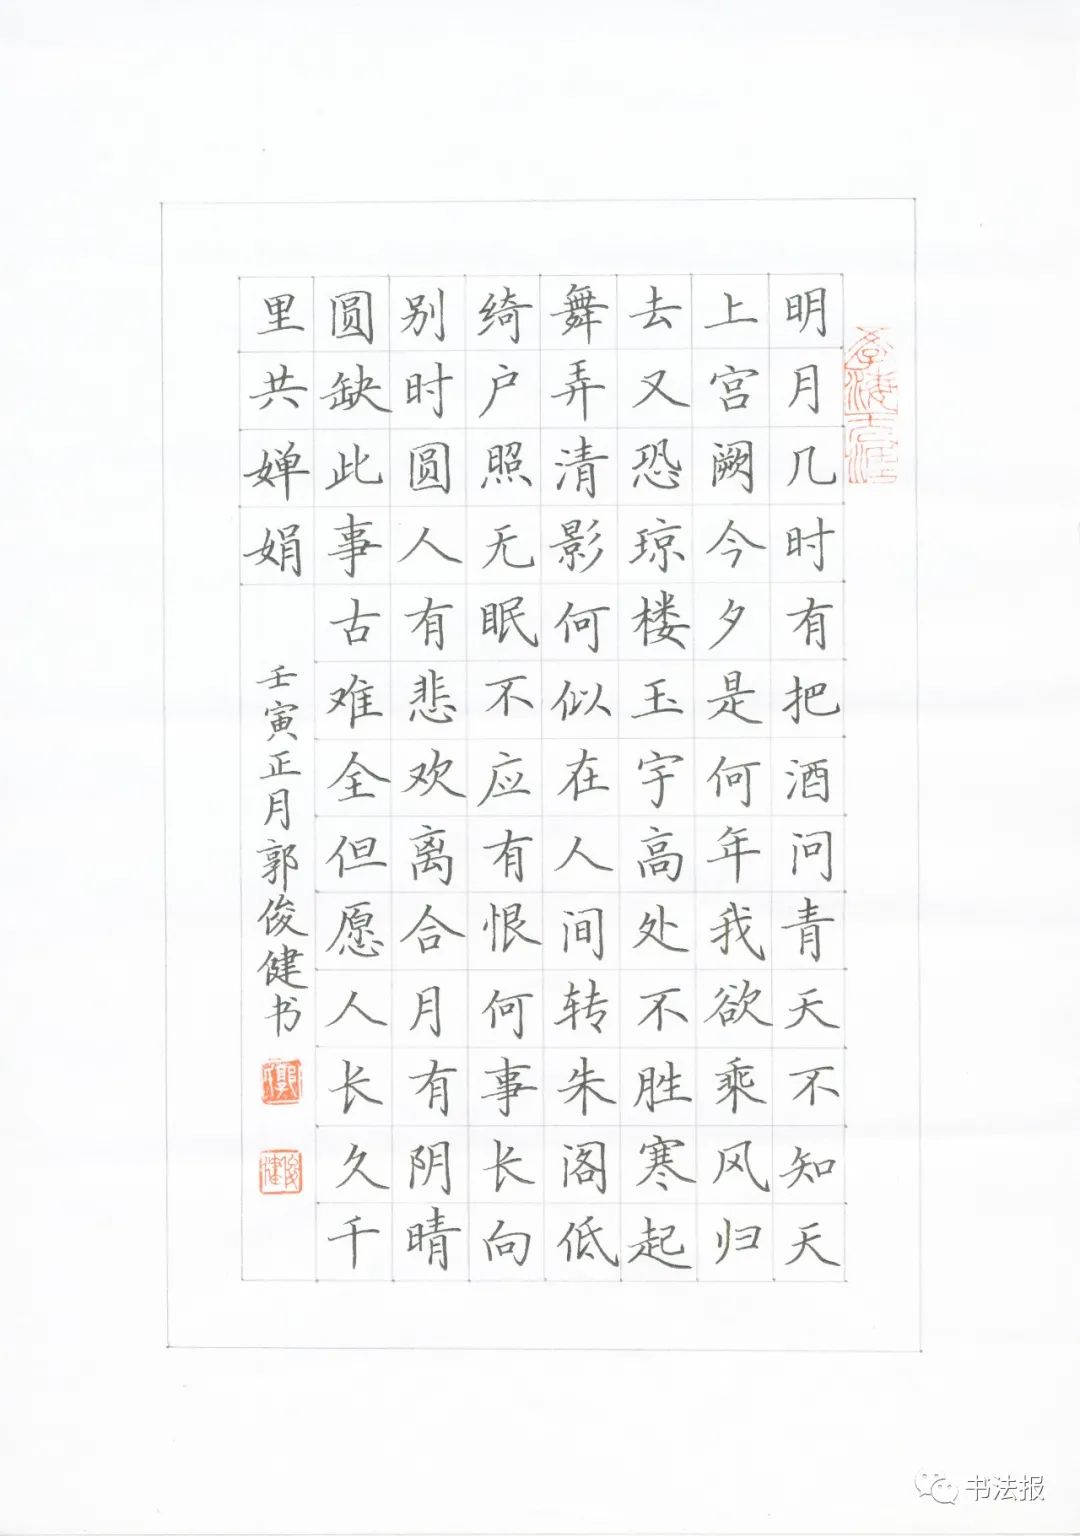 明月几时有把酒问青天不知天
上宫阙今夕是何年我欲乘风归
去又恐琼楼玉宇高处不胜寒起
舞弄清影何似在人间转朱阁低
绮户照无眠不应有恨何事长向
别时圆人有悲欢离合月有阴晴
圆缺此事古难全但愿人长久千
里共婵娟
壬寅正月郭俊健书
郭
俊健
书法报